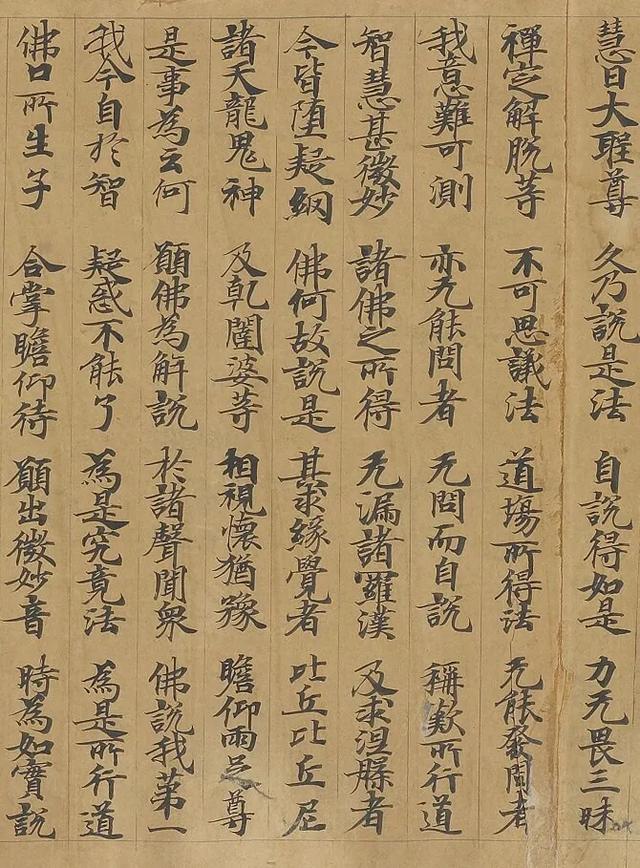 慧日大聖尊 久乃說是法 自說得如是 力无畏三昧
禪定解脫等 不可思議法 道場所得法 无能發問者
我意難可測 亦无能問者 无問而自說 稱歎所行道
智慧甚微妙 諸佛之所得 无漏諸羅漢 及求涅槃者
今皆墮疑網 佛何故說是 其求緣覺者 比丘比丘尼
諸天龍鬼神 及乾闥婆等 相視懷猶豫 瞻仰兩足尊
是事為云何 願佛為解說 於諸聲聞衆 佛說我第一
我今自於智 疑惑不能了 為是究竟法 為是所行道
佛口所生子 合掌瞻仰待 願出微妙音 時為如實說